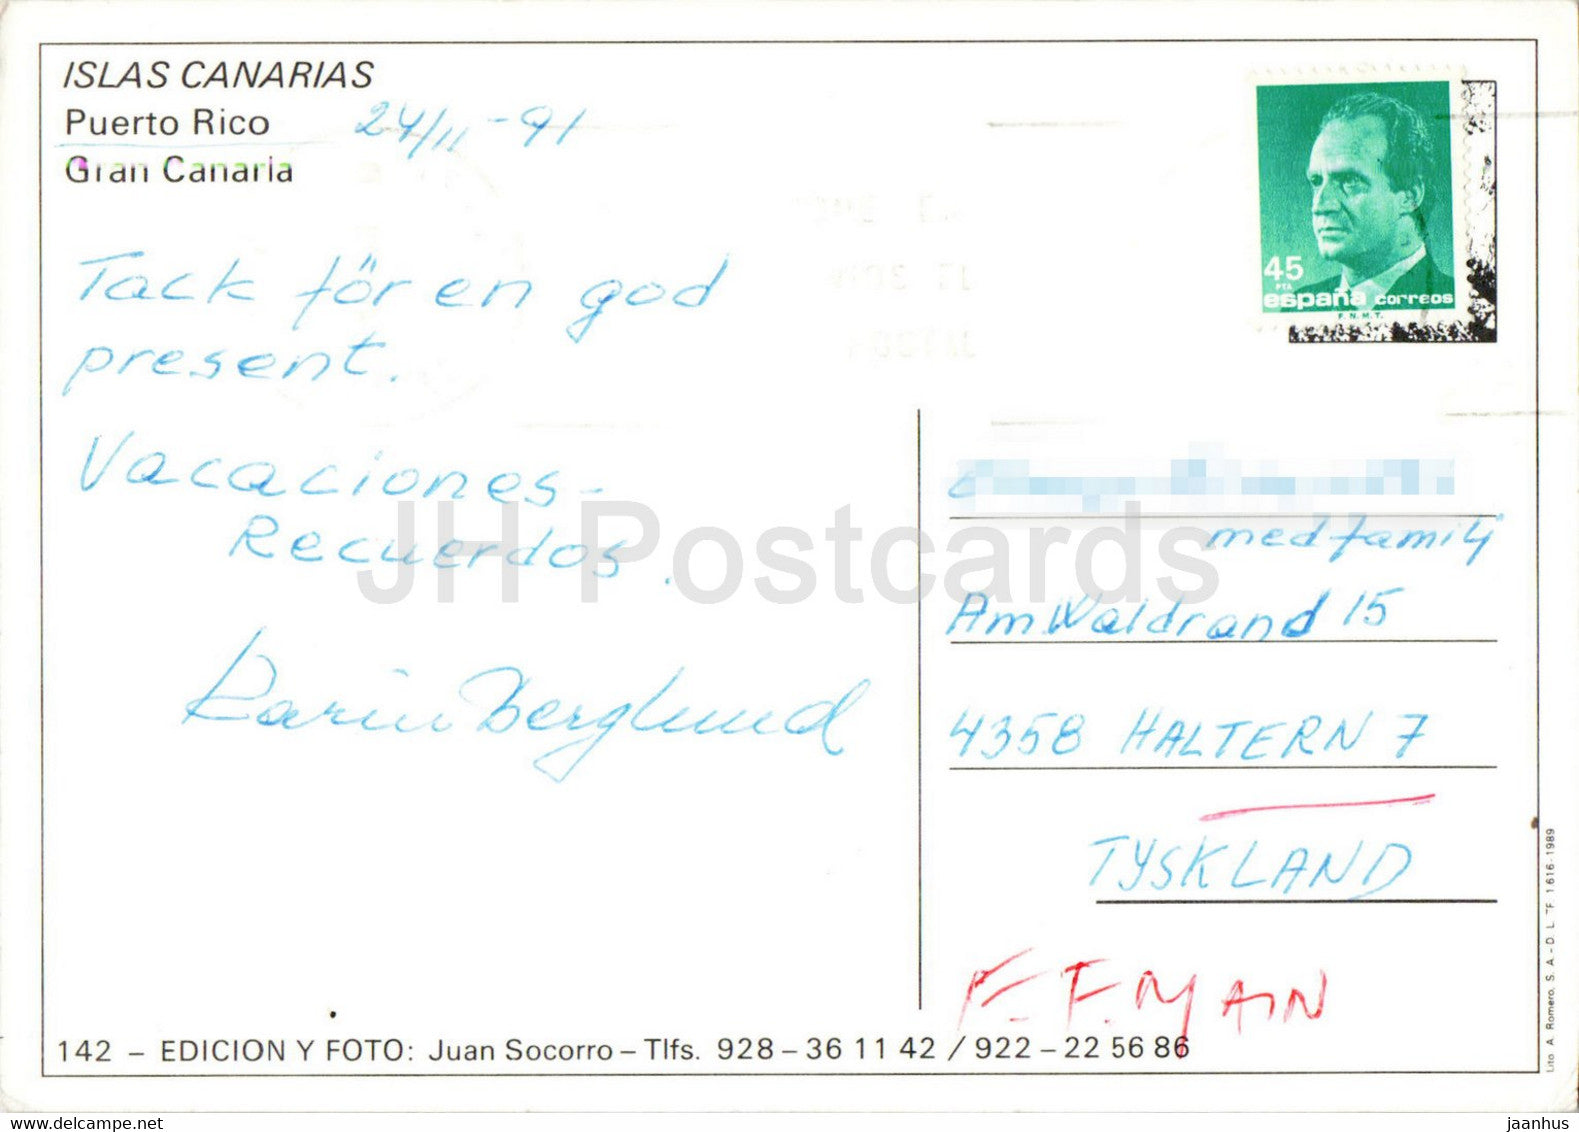 ISLAS CANARIAS
Puerto Rico
24/11-91
Gran Canaria
Tack för en god
present.
Vacaciones-
Recuerdos.
Karin Berglund
45
PTA
españa correos
F.N.M.T.
med familj
Am Waldrand 15
4358 HALTERN 7
TYSKLAND
F.F.MAIN
142 – EDICION Y FOTO: Juan Socorro – Tlfs. 928 – 36 11 42 / 922 – 22 56 86
Lito. A. Romero, S. A. - D. L. TF. 1616-1989
JH Postcards
jaanhus